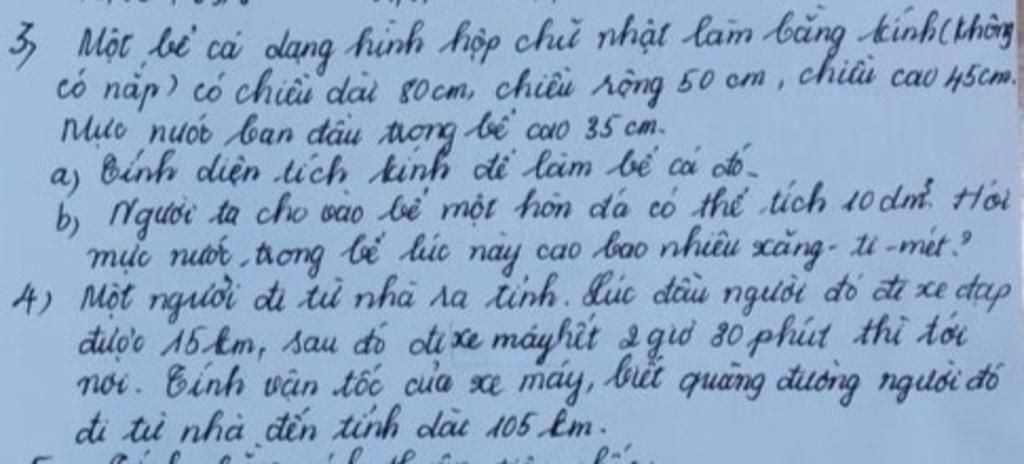 3) Một bể cá dạng hình hộp chữ nhật làm bằng kính (không
có nắp) có chiều dài 80cm, chiều rộng 50 cm, chiều cao 45cm.
Mực nước ban đầu trong bể cao 35 cm.
a) Tính diện tích kính để làm bể cá đó.
b) Người ta cho vào bể một hòn đá có thể tích 10 dm³. Hỏi
mực nước trong bể lúc này cao bao nhiêu xăng-ti-mét?
4) Một người đi từ nhà ra tỉnh. Lúc đầu người đó đi xe đạp
được 15 km, sau đó đi xe máy hết 2 giờ 30 phút thì tới
nơi. Tính vận tốc của xe máy, biết quãng đường người đó
đi từ nhà đến tỉnh dài 105 km.